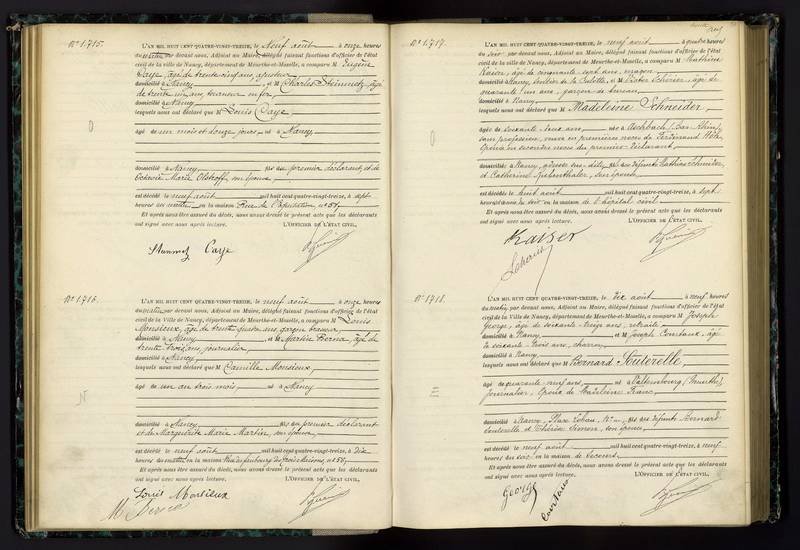 N° 1.715.
L'AN MIL HUIT CENT QUATRE-VINGT-TREIZE, le neuf août à onze heures
du matin, par devant nous, Adjoint au Maire, délégué faisant fonctions d'officier de l'état
civil de la ville de Nancy, département de Meurthe-et-Moselle, a comparu M Eugène
Caye, âgé de trente cinq ans, ajusteur
domicilié à Nancy, et M Charles Steinmetz, âgé
de trente un ans, tourneur en fer,
domicilié à Nancy
lesquels nous ont déclaré que M Louis Caye
âgé de un mois et douze jours, né à Nancy,
domicilié à Nancy fils du premier déclarant, et de
Octavie Marie son épouse,
est décédé le neuf août mil huit cent quatre-vingt-treize, à sept
heures du matin, en la maison Rue de n° 57,
Et après nous être assuré du décès, nous avons dressé le présent acte que les déclarants
ont signé avec nous après lecture. L'OFFICIER DE L'ÉTAT CIVIL,
Caye
N° 1.716.
L'AN MIL HUIT CENT QUATRE-VINGT-TREIZE, le neuf août à onze heures
du matin, par devant nous, Adjoint au Maire, délégué faisant fonctions d'officier de l'état
civil de la ville de Nancy, département de Meurthe-et-Moselle, a comparu M Louis
Monsieux, âgé de trente quatre ans, garçon brasseur,
domicilié à Nancy, et M Martin Berna, âgé de
trente trois ans, journalier,
domicilié à Nancy
lesquels nous ont déclaré que M Camille Monsieux,
âgé de un an trois mois, né à Nancy
domicilié à Nancy fils du premier déclarant
et de Marguerite Marie Martin, son épouse,
est décédé le neuf août mil huit cent quatre-vingt-treize, à dix
heures du matin, en la maison Rue du faubourg des trois maisons, n° 55,
Et après nous être assuré du décès, nous avons dressé le présent acte que les déclarants
ont signé avec nous après lecture. L'OFFICIER DE L'ÉTAT CIVIL,
Louis Monsieux
N° 1.717.
L'AN MIL HUIT CENT QUATRE-VINGT-TREIZE, le neuf août à quatre heures
du soir, par devant nous, Adjoint au Maire, délégué faisant fonctions d'officier de l'état
civil de la ville de Nancy, département de Meurthe-et-Moselle, a comparu M Mathias
Kaiser, âgé de soixante sept ans, maçon
domicilié à Nancy, et M Victor âgé de
quarante un ans, garçon de bureau
domicilié à Nancy
lesquels nous ont déclaré que M Madeleine Schneider
âgée de soixante deux ans, née à Aschbach (Bas Rhin)
sans profession, veuve en premières noces de Ferdinand
épouse en secondes noces du premier déclarant
domiciliée à Nancy, fille des défunts Mathias Schneider,
et Catherine son épouse
est décédée le huit août mil huit cent quatre-vingt-treize, à sept
heures du soir, en la maison de l'hôpital civil
Et après nous être assuré du décès, nous avons dressé le présent acte que les déclarants
ont signé avec nous après lecture. L'OFFICIER DE L'ÉTAT CIVIL,
Kaiser
N° 1.718.
L'AN MIL HUIT CENT QUATRE-VINGT-TREIZE, le dix août à neuf heures
du matin, par devant nous, Adjoint au Maire, délégué faisant fonctions d'officier de l'état
civil de la ville de Nancy, département de Meurthe-et-Moselle, a comparu M Joseph
George, âgé de soixante treize ans, retraité
domicilié à Nancy, et M Joseph Constaux, âgé
de soixante trois ans, charron
domicilié à Nancy
lesquels nous ont déclaré que M Bernard Souterelle
âgé de quarante neuf ans, né à (Meurthe),
journalier, époux de Madeleine Franc
domicilié à Nancy, Place Lobau, fils des défunts Bernard
Souterelle et Thérèse Simon, son épouse
est décédé le neuf août mil huit cent quatre-vingt-treize, à neuf
heures du soir, en la maison de secours,
Et après nous être assuré du décès, nous avons dressé le présent acte que les déclarants
ont signé avec nous après lecture. L'OFFICIER DE L'ÉTAT CIVIL,
George